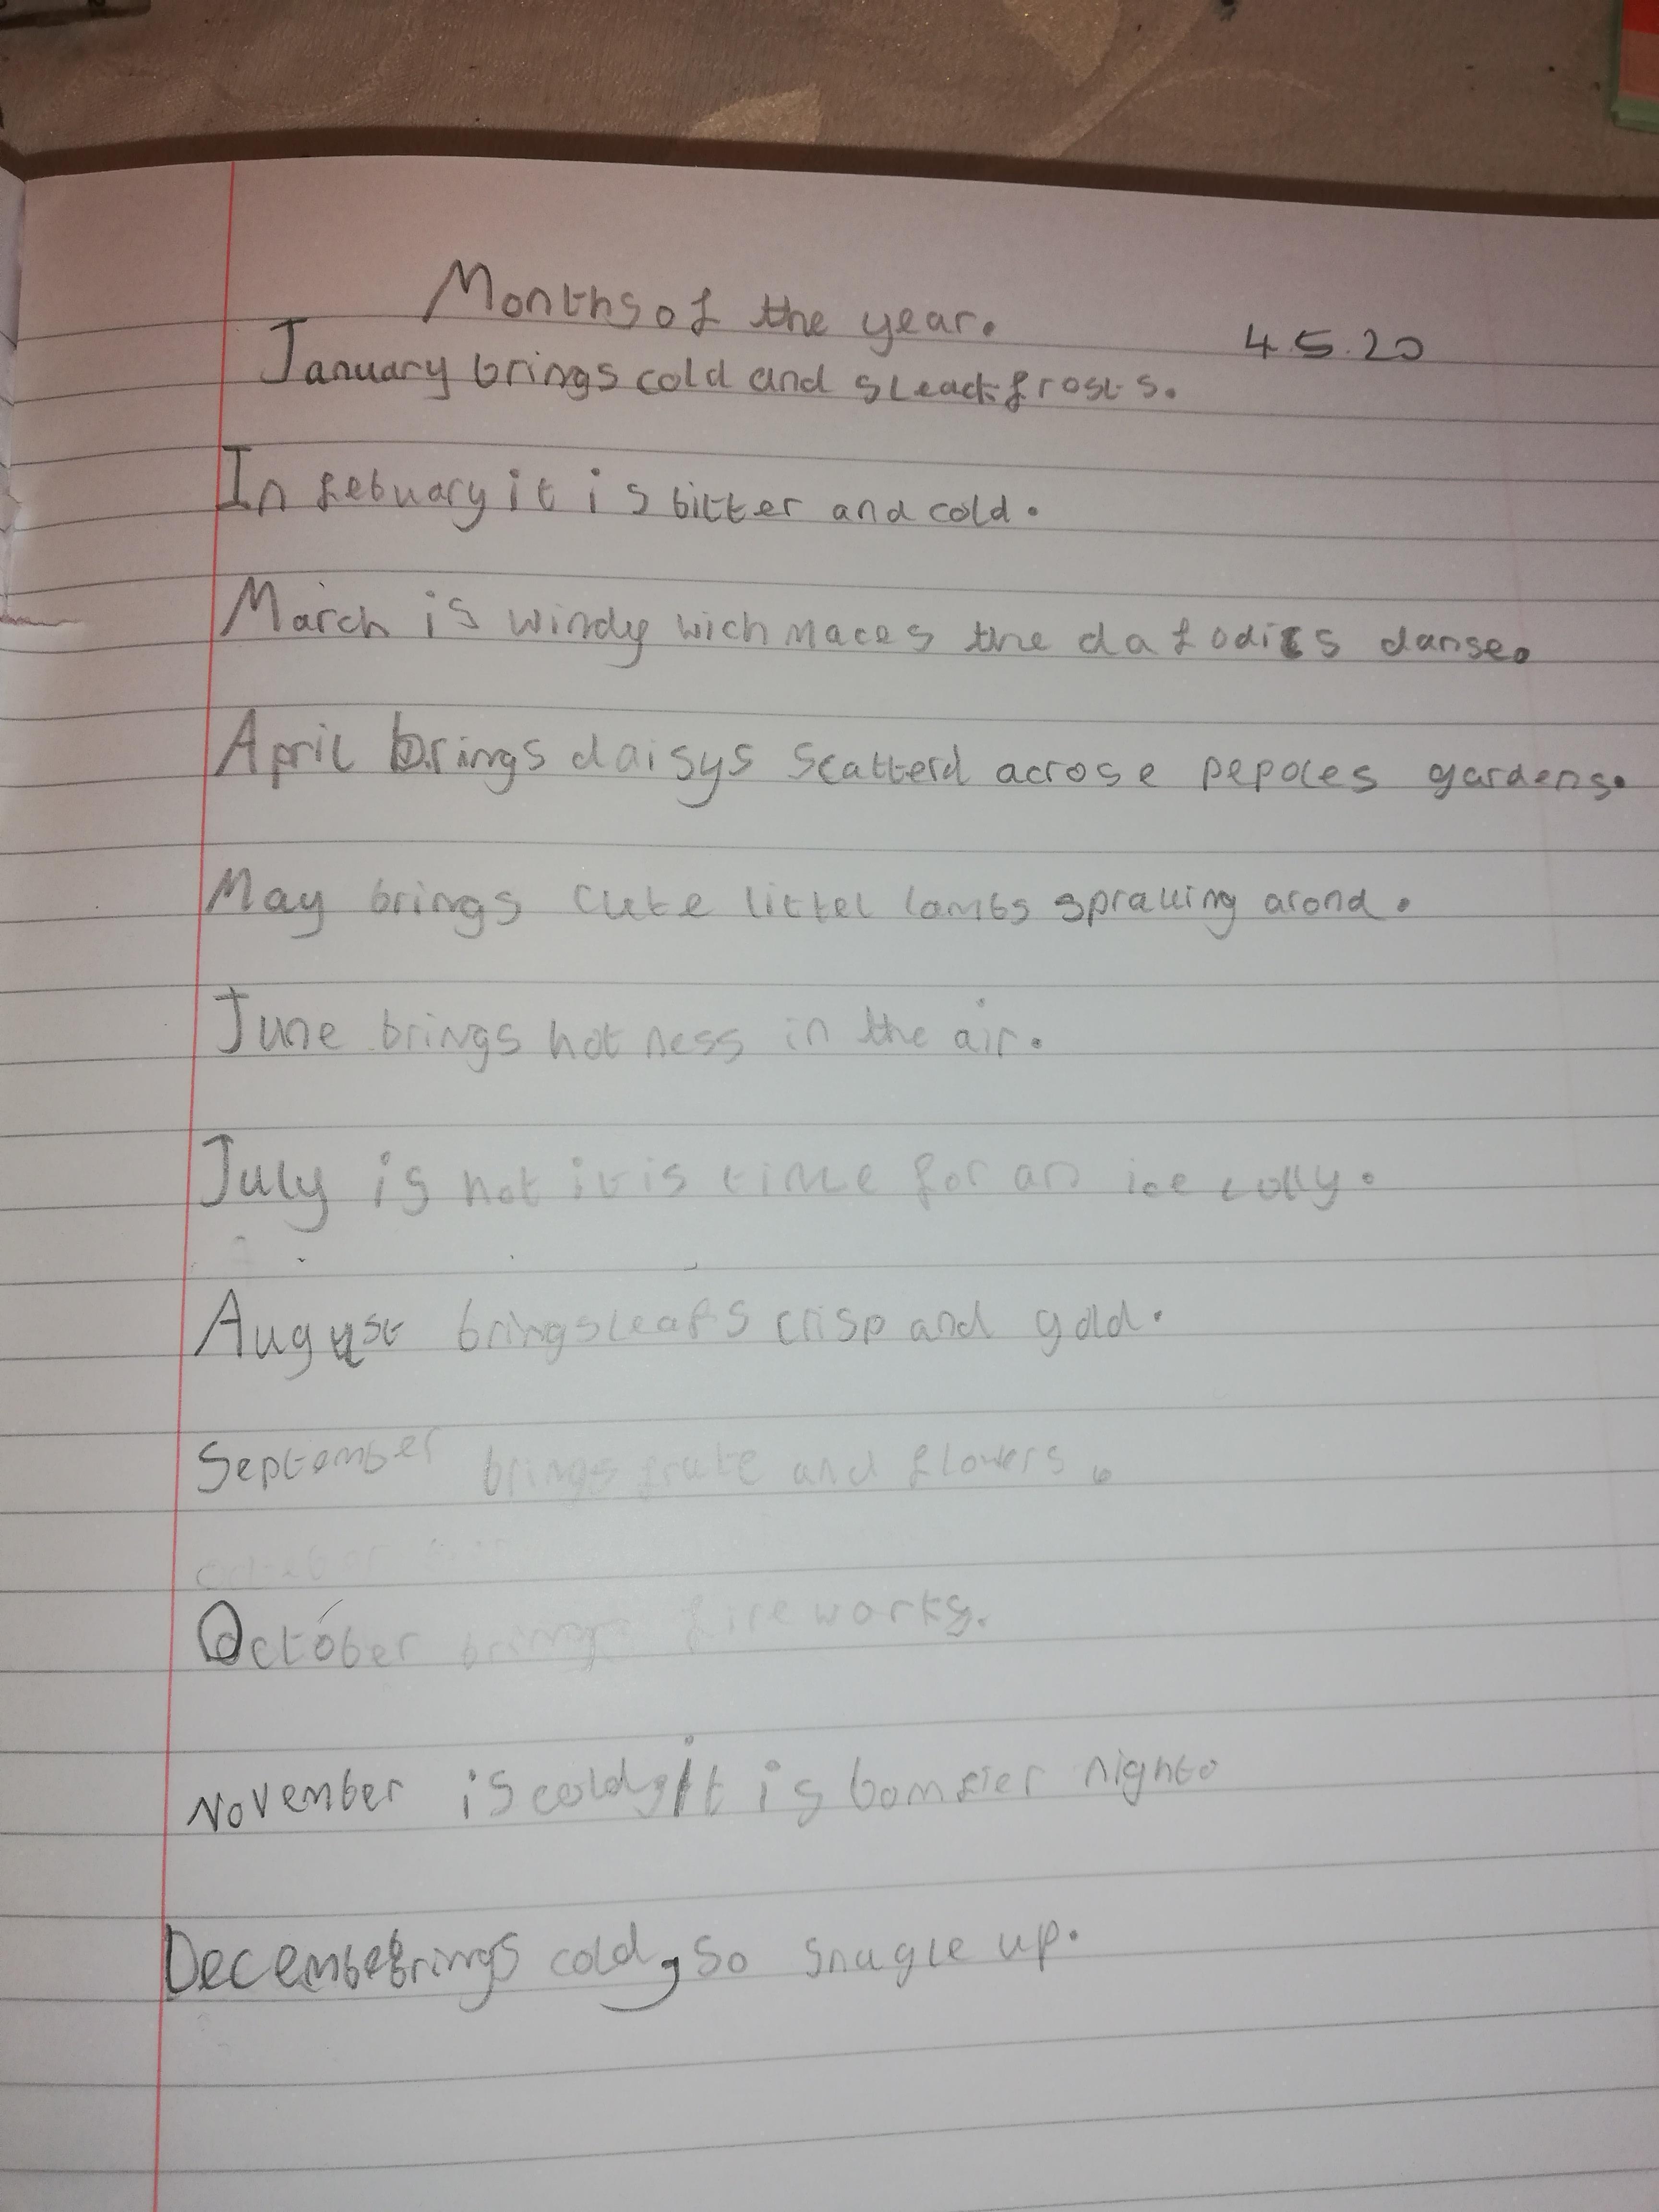 Months of the year.
4.5.20
January brings cold and frosts.
In febuary it is bitter and cold.
March is windy wich maces the dafodils danse.
April brings daisys scatterd acrose pepoles gardens.
May brings cute littel lambs spralling arond.
June brings hot ness in the air.
July is hot it is time for an ice lolly.
August brings leafs crisp and gold.
September brings frute and flowers.
October brings fireworks.
November is cold, it is bomfier night.
December brings cold, so snugle up.